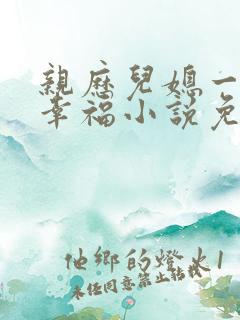 親歷兒媳一
幸福小說免
他鄉的燈火1
未经同意禁止转载